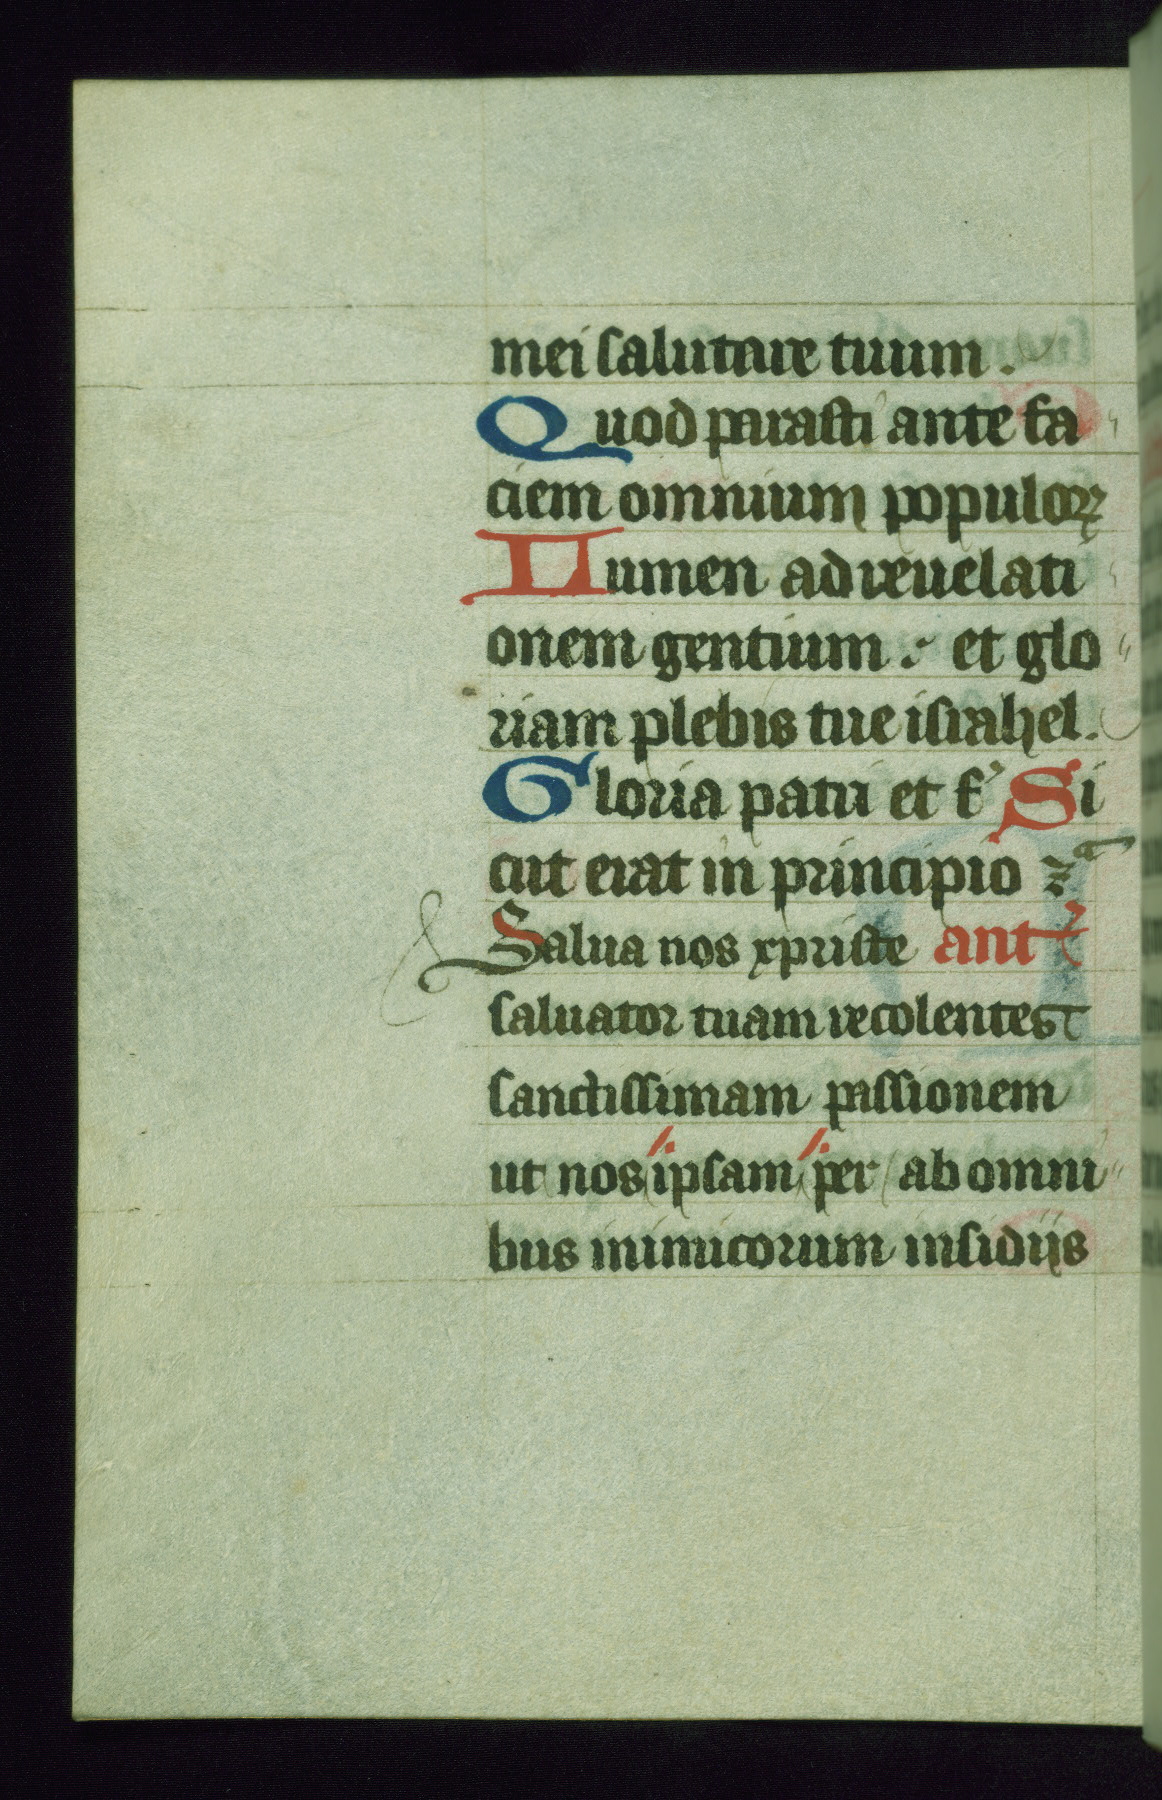 mei salutare tuum.
Quod parasti ante fa
ciem omnium populoꝝ
Lumen ad reuelati
onem gentium : et glo
riam plebis tue israhel.
Gloria patri et f' Si
cut erat in principio ⁊
Salua nos xpriste ant
saluator tuam recolentes
sanctissimam passionem
ut nos ipsam per ab omni
bus inimicorum insidijs